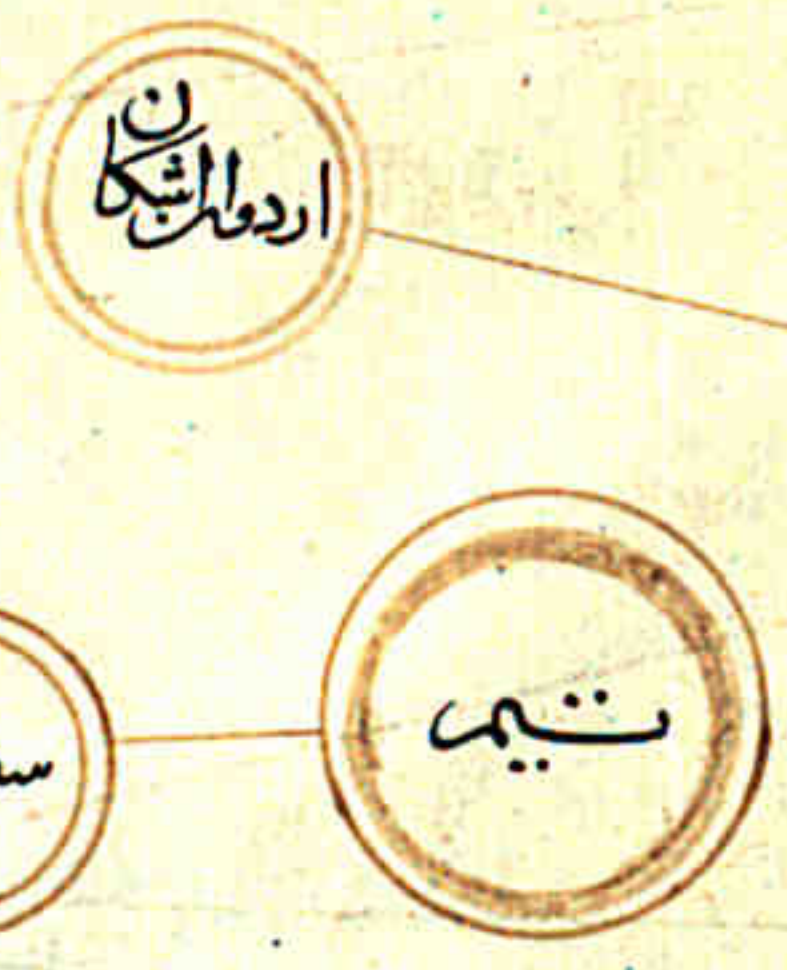 اردوان اشکان
تيم